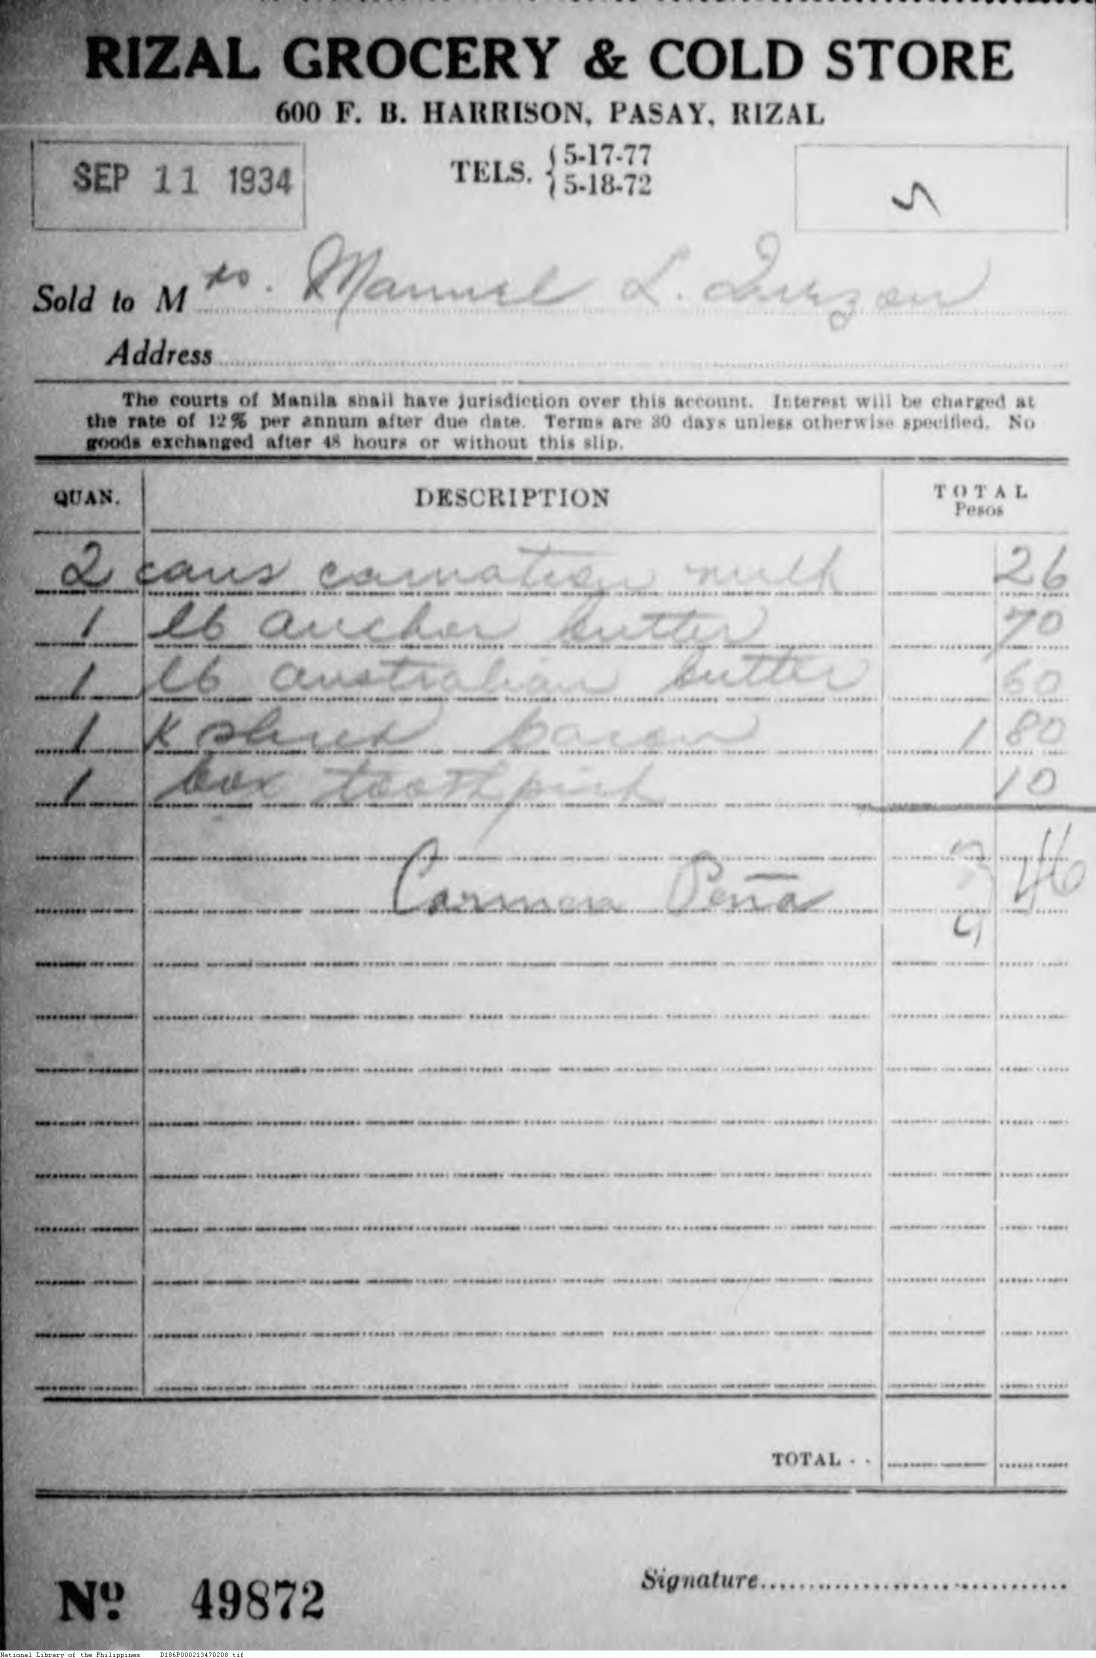 RIZAL GROCERY & COLD STORE
600 F. B. HARRISON, PASAY, RIZAL
SEP 11 1934
TELS. { 5-17-77
5-18-72
Sold to Mrs. Manuel L. Quezon
Address
The courts of Manila shall have jurisdiction over this account. Interest will be charged at
the rate of 12% per annum after due date. Terms are 30 days unless otherwise specified. No
goods exchanged after 48 hours or without this slip.
QUAN. DESCRIPTION TOTAL
Pesos
2 cans carnation milk 26
1 lb anchor butter 70
1 lb australian butter 60
1 K sliced bacon 1 80
1 box toothpick 10
3 46
Carmen Peña
TOTAL - -
Signature
No. 49872
National Library of the Philippines D186P000213470208.tif